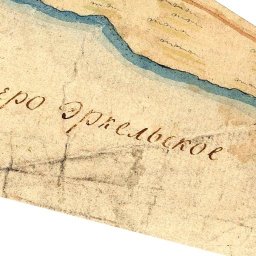 еро Эркельское